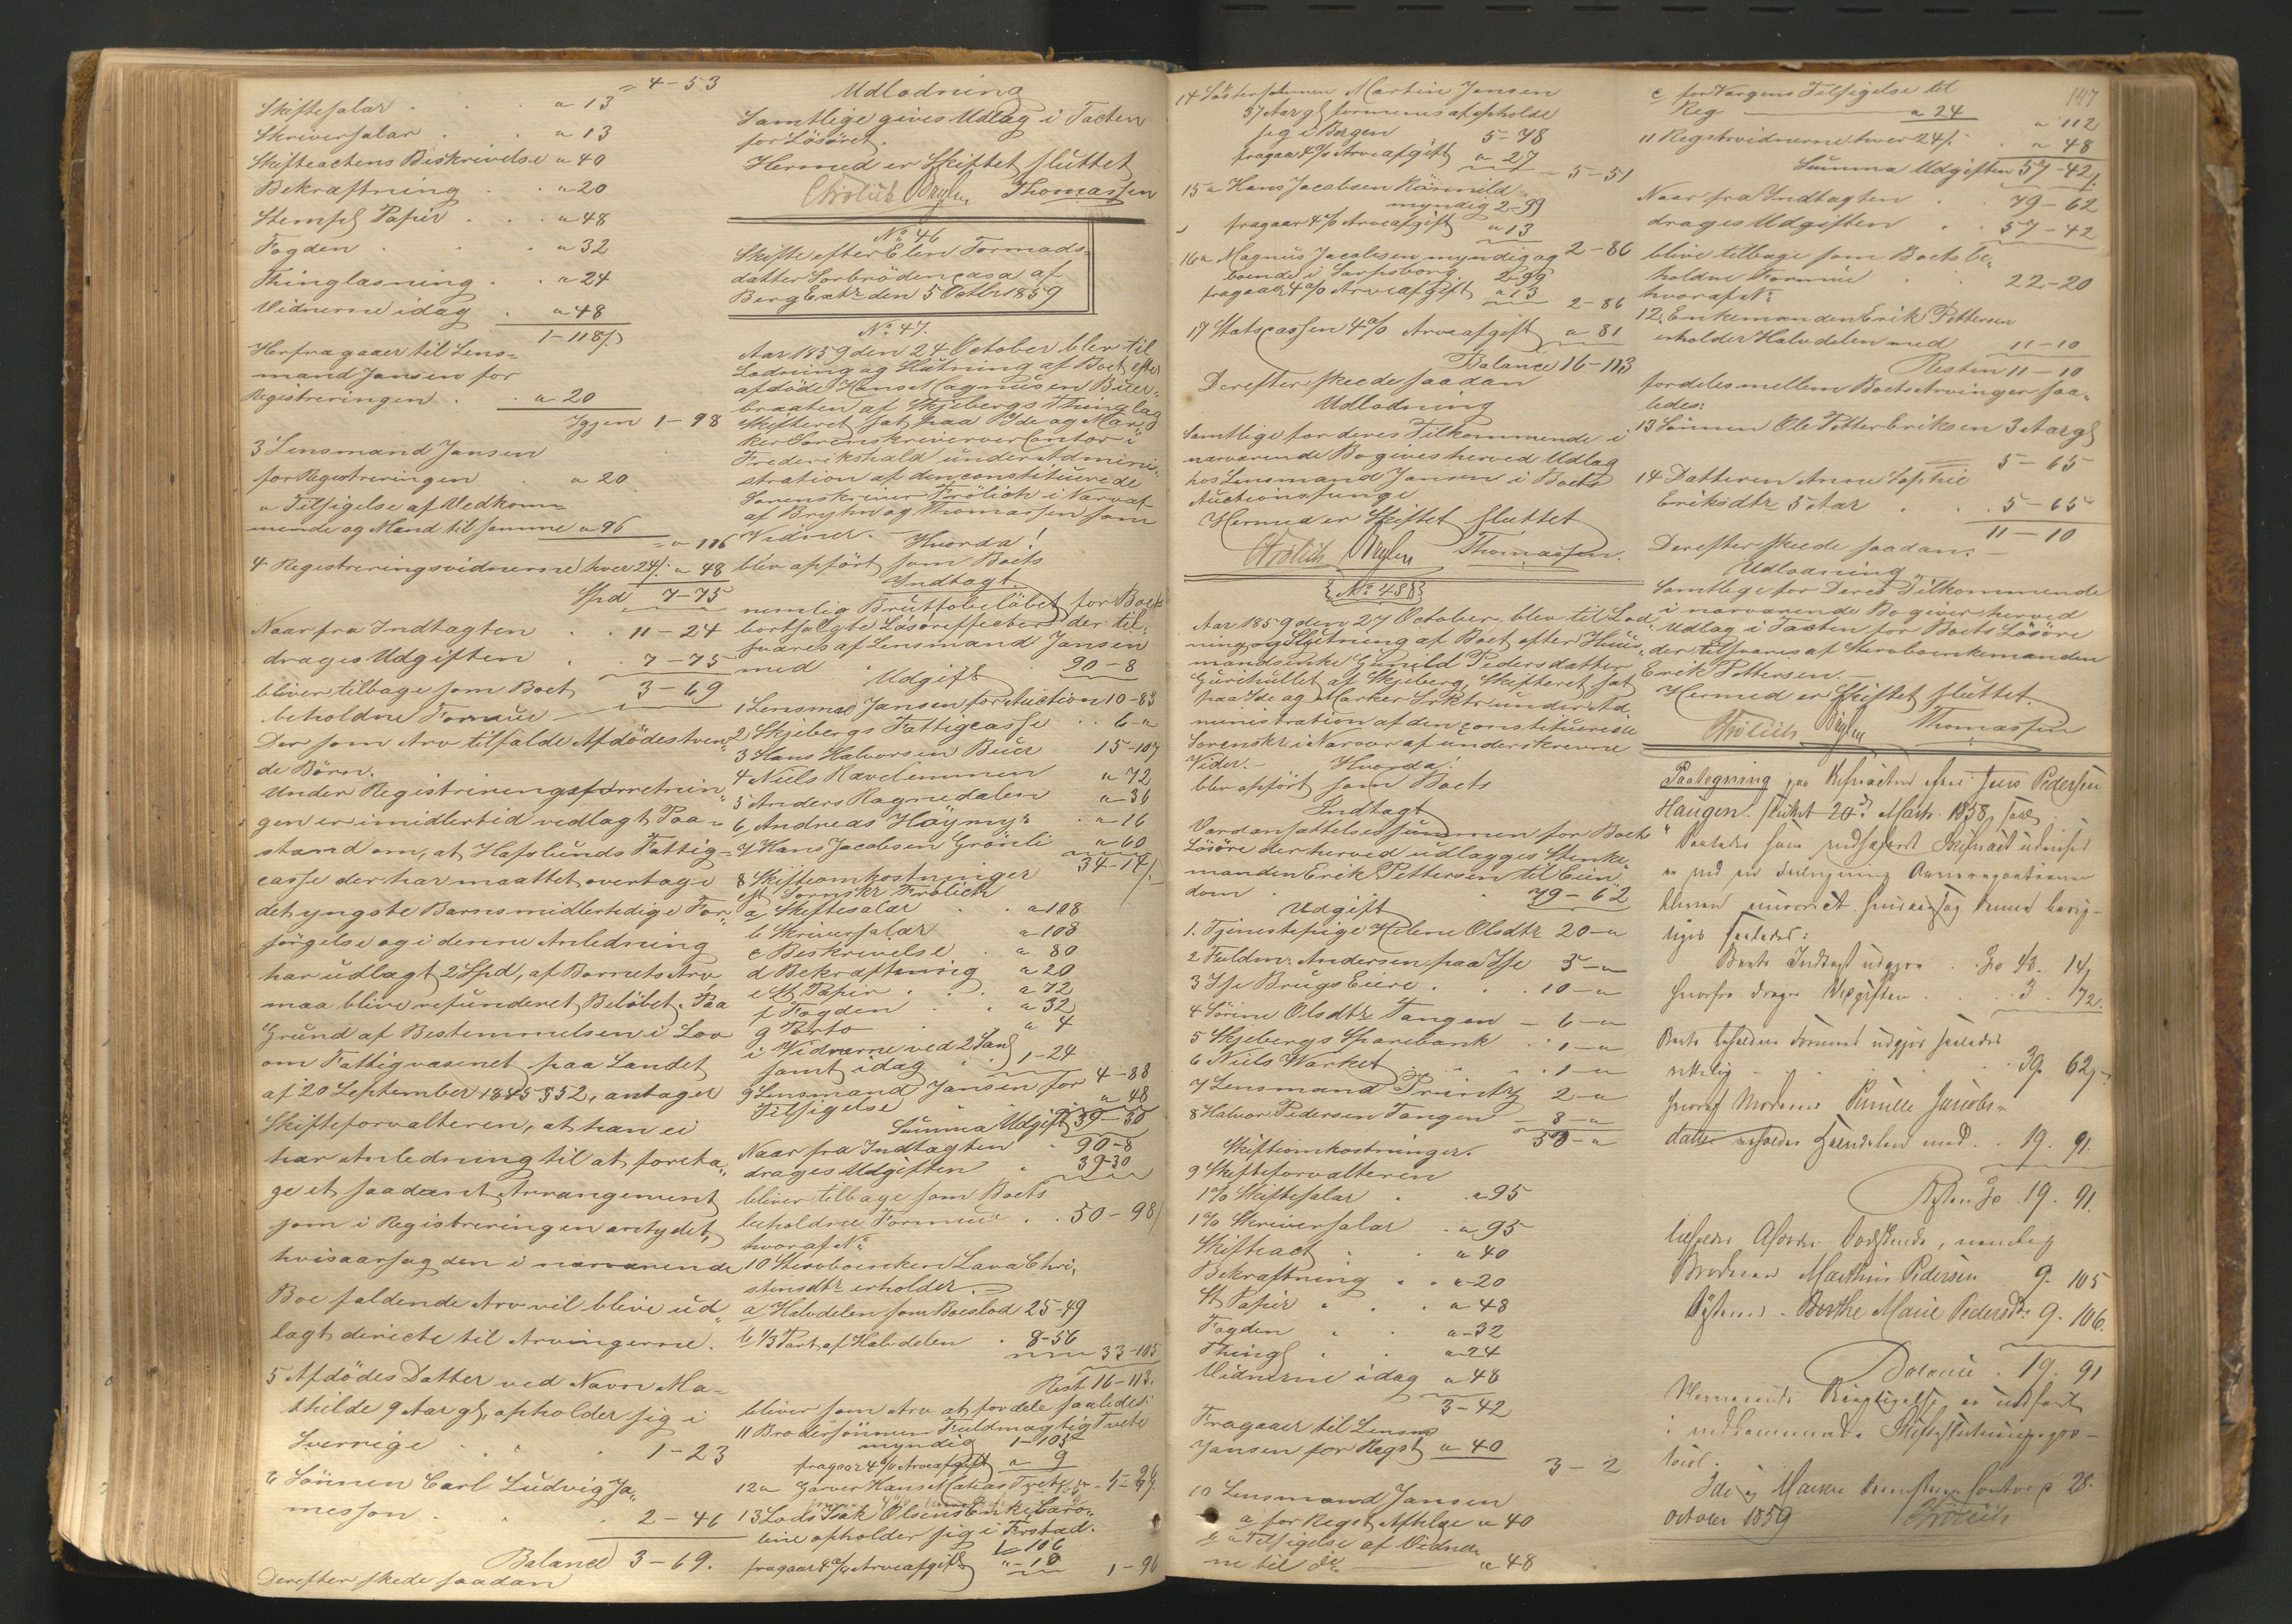 = 4 - 53
Skiftesalar . . " 13
Skriversalar . . " 13
Skifteactens Beskrivelse " 40
Bekræftning . . " 20
Stempl Papir . . " 48
Fogden . . " 32
Thinglæsning . . " 24
Vidnerne idag . " 48
1 - 118 ß
Herfra gaaer til Lens=
mand Jansen for
Registreringen . . " 20
Igjen 1 - 98
3 Lensmand Jansen
for Registreringen . " 20
" Tilsigelse af Vedkom=
mende og Mand til samme " 96
= " 116
4 Registreringsvidnerne hver 24 ß " 48
Spd 7 - 75
Naar fra Indtægten . . 11 - 24
drages Udgiften . . 7 - 75
bliver tilbage som Boets 3 - 69
beholdne Formue
Der som Arv tilfalde Afdødes tven=
de Børn.
Under Registreringsforretnin=
gen er imidlertid vedlagt Paa=
stand om, at Hafslunds Fattig=
casse der har maattet overtage
det yngste Barns midlertidige For=
sørgelse og i denne Anledning
har udlagt 2 Spd, af Barnets Arv
maa blive refunderet Beløbet. Paa
Grund af Bestemmelsen i Lov
om Fattigvæsenet paa Landet
af 20 September 1845 § 52, antager
Skifteforvalteren, at han ei
har Anledning til at foreta=
ge et saadant Arrangement
som i Registreringen antydet,
hvisaarsag den i nærværende
Boe faldende Arv vil blive ud=
lagt directe til Arvingerne.
5 Afdødes Datter ved Navn Ma=
thilde 9 Aar gl, opholder sig i
Sverrige . . . 1 - 23
6 Sønnen Carl Ludvig Ja=
messon . . . 2 - 46
Balance 3 - 69.
Derefter skede saadan
Udlodning
Samtlige gives Udlag i Taxten
for Løsøret.
Hermed er Skiftet sluttet
Frølich Bryhn Thomassen
No 46
Skifte efter Elen Tormods=
datter Sorbrødencasa af
Berg Extr. den 5 Octbr 1859
No 47.
Aar 1859 den 24 October blev til
Lodning og Slutning af Boet efter
afdøde Hans Magnusen Buer=
braaten af Skjebergs Thinglag
Skifteret sat paa Ide og Mar=
ker Sorenskriverver Contor i
Frederikshald under Admini=
stration af den constituerede
Sorenskriver Frølich i Nærvær
af Bryhn og Thomassen som
Vidner. — Hvorda!
blev opført som Boets
Indtægt
nemlig Bruttobeløbet for Boets
bortsolgte Løsøreeffecter der til=
svares af Lensmand Jansen
med . 90 - 8
Udgift
1 Lensmd Jansen for Auction 10 - 83
2 Skjebergs Fattigcasse . . 6 - "
3 Hans Halvorsen Buer 15 - 107
4 Niels Ravelemmen " 72
5 Anders Ragnedalen " 36
6 Andreas Høymyr . " 16
7 Hans Jacobsen Grønli " 60
34 - 14 ß
8 Skifteomkostninger
eft Sornskr Frølich
a Skiftesalar . . " 108
b Skriversalar " 108
c Beskrivelse . " 80
d Bekræftning " 20
e St Papir . . " 72
f Fogden . . " 32
g Porto . " 4
i Vidnerne ved 2 Sam
samt idag . 1 - 24
4 - 88
9 Lensmand Jansen for
Tilsigelse " 48
Summa Udgift 39 - 30
Naar fra Indtægten . 90 - 8
drages Udgiften . 39 - 30
bliver tilbage som Boets
beholdne Formue . . 50 - 98 ß
hvoraf No
10 Stervboenken Lava Chri=
stensdtr erholder. —
a Halvdelen som Boeslod 25 - 49
b 1/3 Part af Halvdelen . 8 - 56
33 - 105
Rest 16 - 113.
bliver som Arv at fordele saaledes:
11 Brodersønnen Fuldmægtig Tvete
myndig 1 - 105
fragaar 4% Arveafgift " 9
1 - 96
12 " Garver Hans Matias Tvete
13 Lods Isak Olsens Enke Caro=
line opholder sig i Krstad.
1 - 106
fragaar 4% Arveafgift " 10
1 - 96
14 Søstersønnen Martin Jansen
37 Aar gl formenes at opholde
sig i Bergen 5 - 78
fragaar 4% Arveafgift " 27
5 - 51
15 " Hans Jacobsen Kårnild
myndig 2 - 99
fragaar 4% Arveafgift " 13
2 - 86
16 " Magnus Jacobsen myndig og
boende i Sarpsborg. 2 - 99
fragaaer 4% Arveafgift " 13
2 - 86
17 Statscassen 4% Arveafgift " 81
Balance 16 - 113
Derefter skeede saadan
Udlodning
Samtlige for deres Tilkommende i
nærværende Bo gives herved Udlag
hos Lensmand Jansen i Boets
Auctionspenge
Hermed er Skiftet sluttet
Frølich Bryhn Thomassen.
No 48
Aar 1859 den 27 October, blev til Lod=
ning og Slutning af Boet efter Huus=
mandsenke Gunild Pedersdatter
Gurehullet af Skjeberg, Skifteret sat
paa Ide og Marker Srktr under Ad=
ministration af den constituerede
Sorenskr. i Nærvær af underskrevne
Vidner. — Hvorda!
blev opført som Boets
Indtægt
Værdansættelsessummen for Boets
Løsøre der herved udlægges Stenke=
manden Erik Pettersen til Eien=
dom . . 79 - 62
Udgift
1. Tjenestepige Helene Olsdtr 20 - "
2 Fuldm: Andersen paa Ise 5 - "
3 Ise Brugs Eiere . . 10 - "
4 Sørine Olsdtr Tangen — 6 - "
5 Skjebergs Sparebank . . 1 - "
6 Niels Warket . . . 1 - "
7 Lensmand Printz 2 - "
8 Halvor Pedersen Tangen — 8 - "
53 - "
Skifteomkostninger.
9 Skifteforvalteren
1% Skiftesalar . . " 95
1% Skriversalar . " 95
Skifteact . . " 40
Bekræftning . . " 20
St Papir . . " 48
Fogden . . " 32
Thingl . . " 24
Vidnerne idag " 48
3 - 42
Fragaaer til Lensmd
Jansen for Regst " 40
3 - 2
10 Lensmand Jansen
a for Regst Afholdelse " 40
b " Tilsigelse af Vidner=
ne til do — " 48
147
c for Værgens Tilsigelse til
Reg — " 24
" 112
11 Regstrvidnerne hver 24 ß . " 48
Summa Udgiften 57 - 42 ß
Naar fra Indtægten . . 79 - 62
drages Udgiften . . 57 - 42
blive tilbage som Boets be=
holdne Formue . . 22 - 20
hvoraf No
12. Enkemanden Erik Pettersen
erholder Halvdelen med 11 - 10
Resten 11 - 10
fordeles mellem Boets Arvinger saa=
ledes:
13 Sønnen Ole Petter Eriksen 3 Aar gl
5 - 65
14 Datteren Anne Sophie
Eriksdtr 5 Aar . . 5 - 65
11 - 10
Derefter skeede saadan: —
Udlodning
Samtlige for Deres Tilkommende
i nærværende Bo giver herved
Udlag i Taxten for Boets Løsøre
der tilsvares af Stervboenkemanden
Erik Pettersen. —
Hermed er Skiftet sluttet.
Frølich Bryhn Thomassen
Paategning paa Skifteacten efter Jens Pedersen
Haugen. sluttet 20de Marts 1858, saal.
Boets Indtægt udgjør . Spd 43. 14,
hvorfra drages Udgiften . . . 3. 72.
Boets beholdne Formue udgjør saaledes
rettelig . . . 39. 62,
hvoraf Moderen Pernille Jacobs=
datter erholder Halvdelen med . . 19. 91.
Resten Spd . 19. 91.
tilfalder Afdødes Sødskende, nemlig
Broderen Mathias Pedersen 9. 105
Søsteren . Berthe Marie Pedersdtr 9. 106.
Balance . 19. 91
Ide og Marker Sorenskriver Contor d 28.
October 1859 Frølich